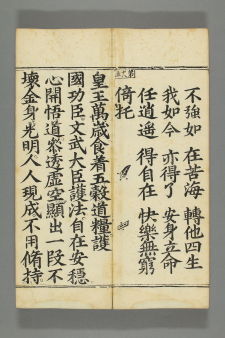 不強如 在苦海 轉他四生
我如今 亦得了 安身立命
任逍遥 得自在 快樂無窮
倚托
皇王萬歲食着五穀道糧護
國功臣文武大臣護法自在安穩
心開悟道參透虛空顯出一段不
壞金身光明人人現成不用脩持